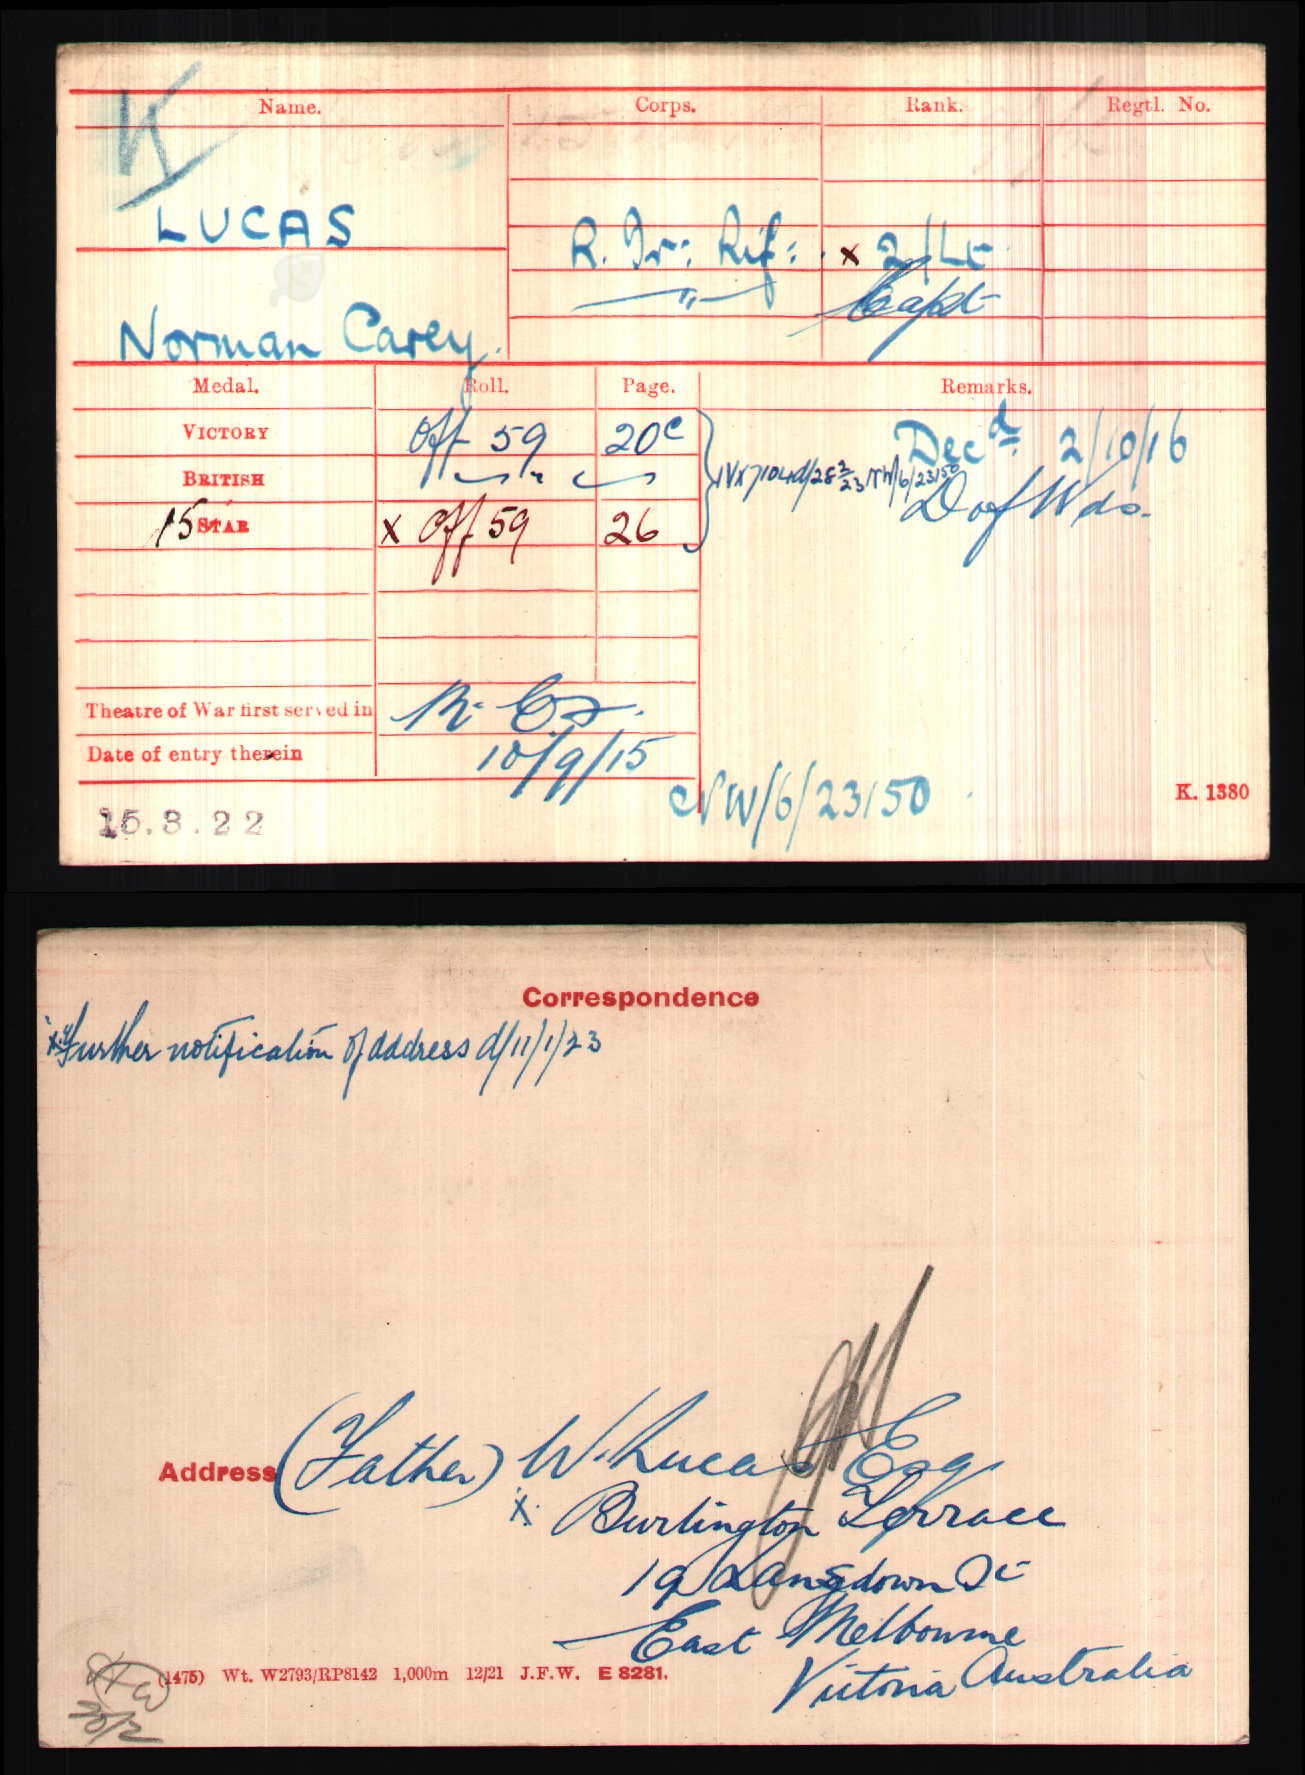 K
Name. Corps. Rank. Regtl. No.
LUCAS
R. Ir: Rif: x 2/Lt
—"— Capt
Norman Carey.
Medal. Roll. Page. Remarks.
VICTORY Off 59 20c Decd 2/10/16
BRITISH " " IVX/7104d/28 2/23 NW/6/23150
D of Wds.
15 STAR x Off 59 26
Theatre of War first served in
Date of entry therein 10/9/15
NW/6/23150
K. 1380
15.3.22
Correspondence
Further notification of address d/11/1/23
Address (Father) W. Lucas Esq
x Burlington Terrace
19 Lansdown St
East Melbourne
Victoria Australia
(1475) Wt. W2793/RP8142 1,000m 12/21 J.F.W. E 8281.